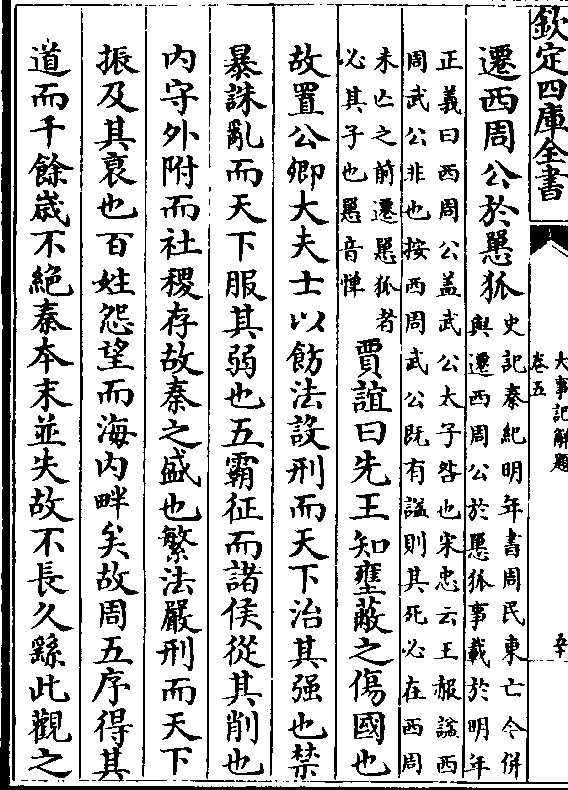 欽定四庫全書
大事記解題
卷五
遷西周公於𢠸狐
史記秦紀明年書周民東亡今併
與遷西周公於𢠸狐事載於明年
正義曰西周公盖武公太子咎也宋忠云王赧諡西
周武公非也按西周武公既有諡則其死必在西周
未亡之前遷𢠸狐者
必其子也𢠸音憚
賈誼曰先王知壅蔽之傷國也
故置公卿大夫士以飭法設刑而天下治其强也禁
暴誅亂而天下服其弱也五霸征而諸侯從其削也
内守外附而社稷存故秦之盛也繁法嚴刑而天下
振及其衰也百姓怨望而海内畔矣故周五序得其
道而千餘歲不絶秦本末並失故不長久繇此觀之